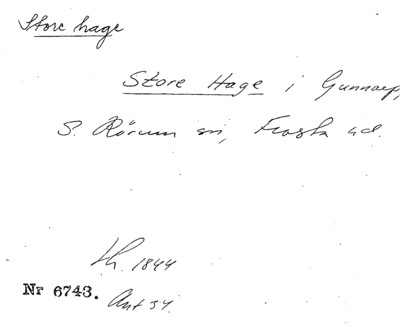 Store hage
Store Hage i Gunnarp,
S. Rörum sn, Frosta hd.
th. 1844
Nr 6743. Ant 34.